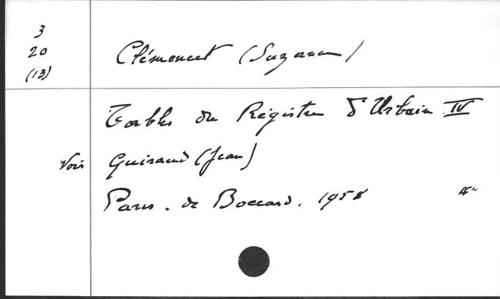 3
20
(13)
Clémencet (Suzanne)
Tables du Régistre d'Urbain IV
Voir Guiraud (Jean)
Paris. de Boccard. 1958 4°